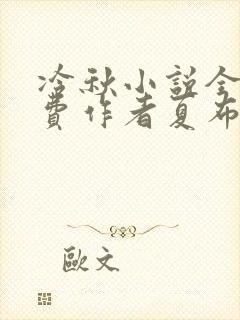 冷秋小說全
費作者夏布
歐文